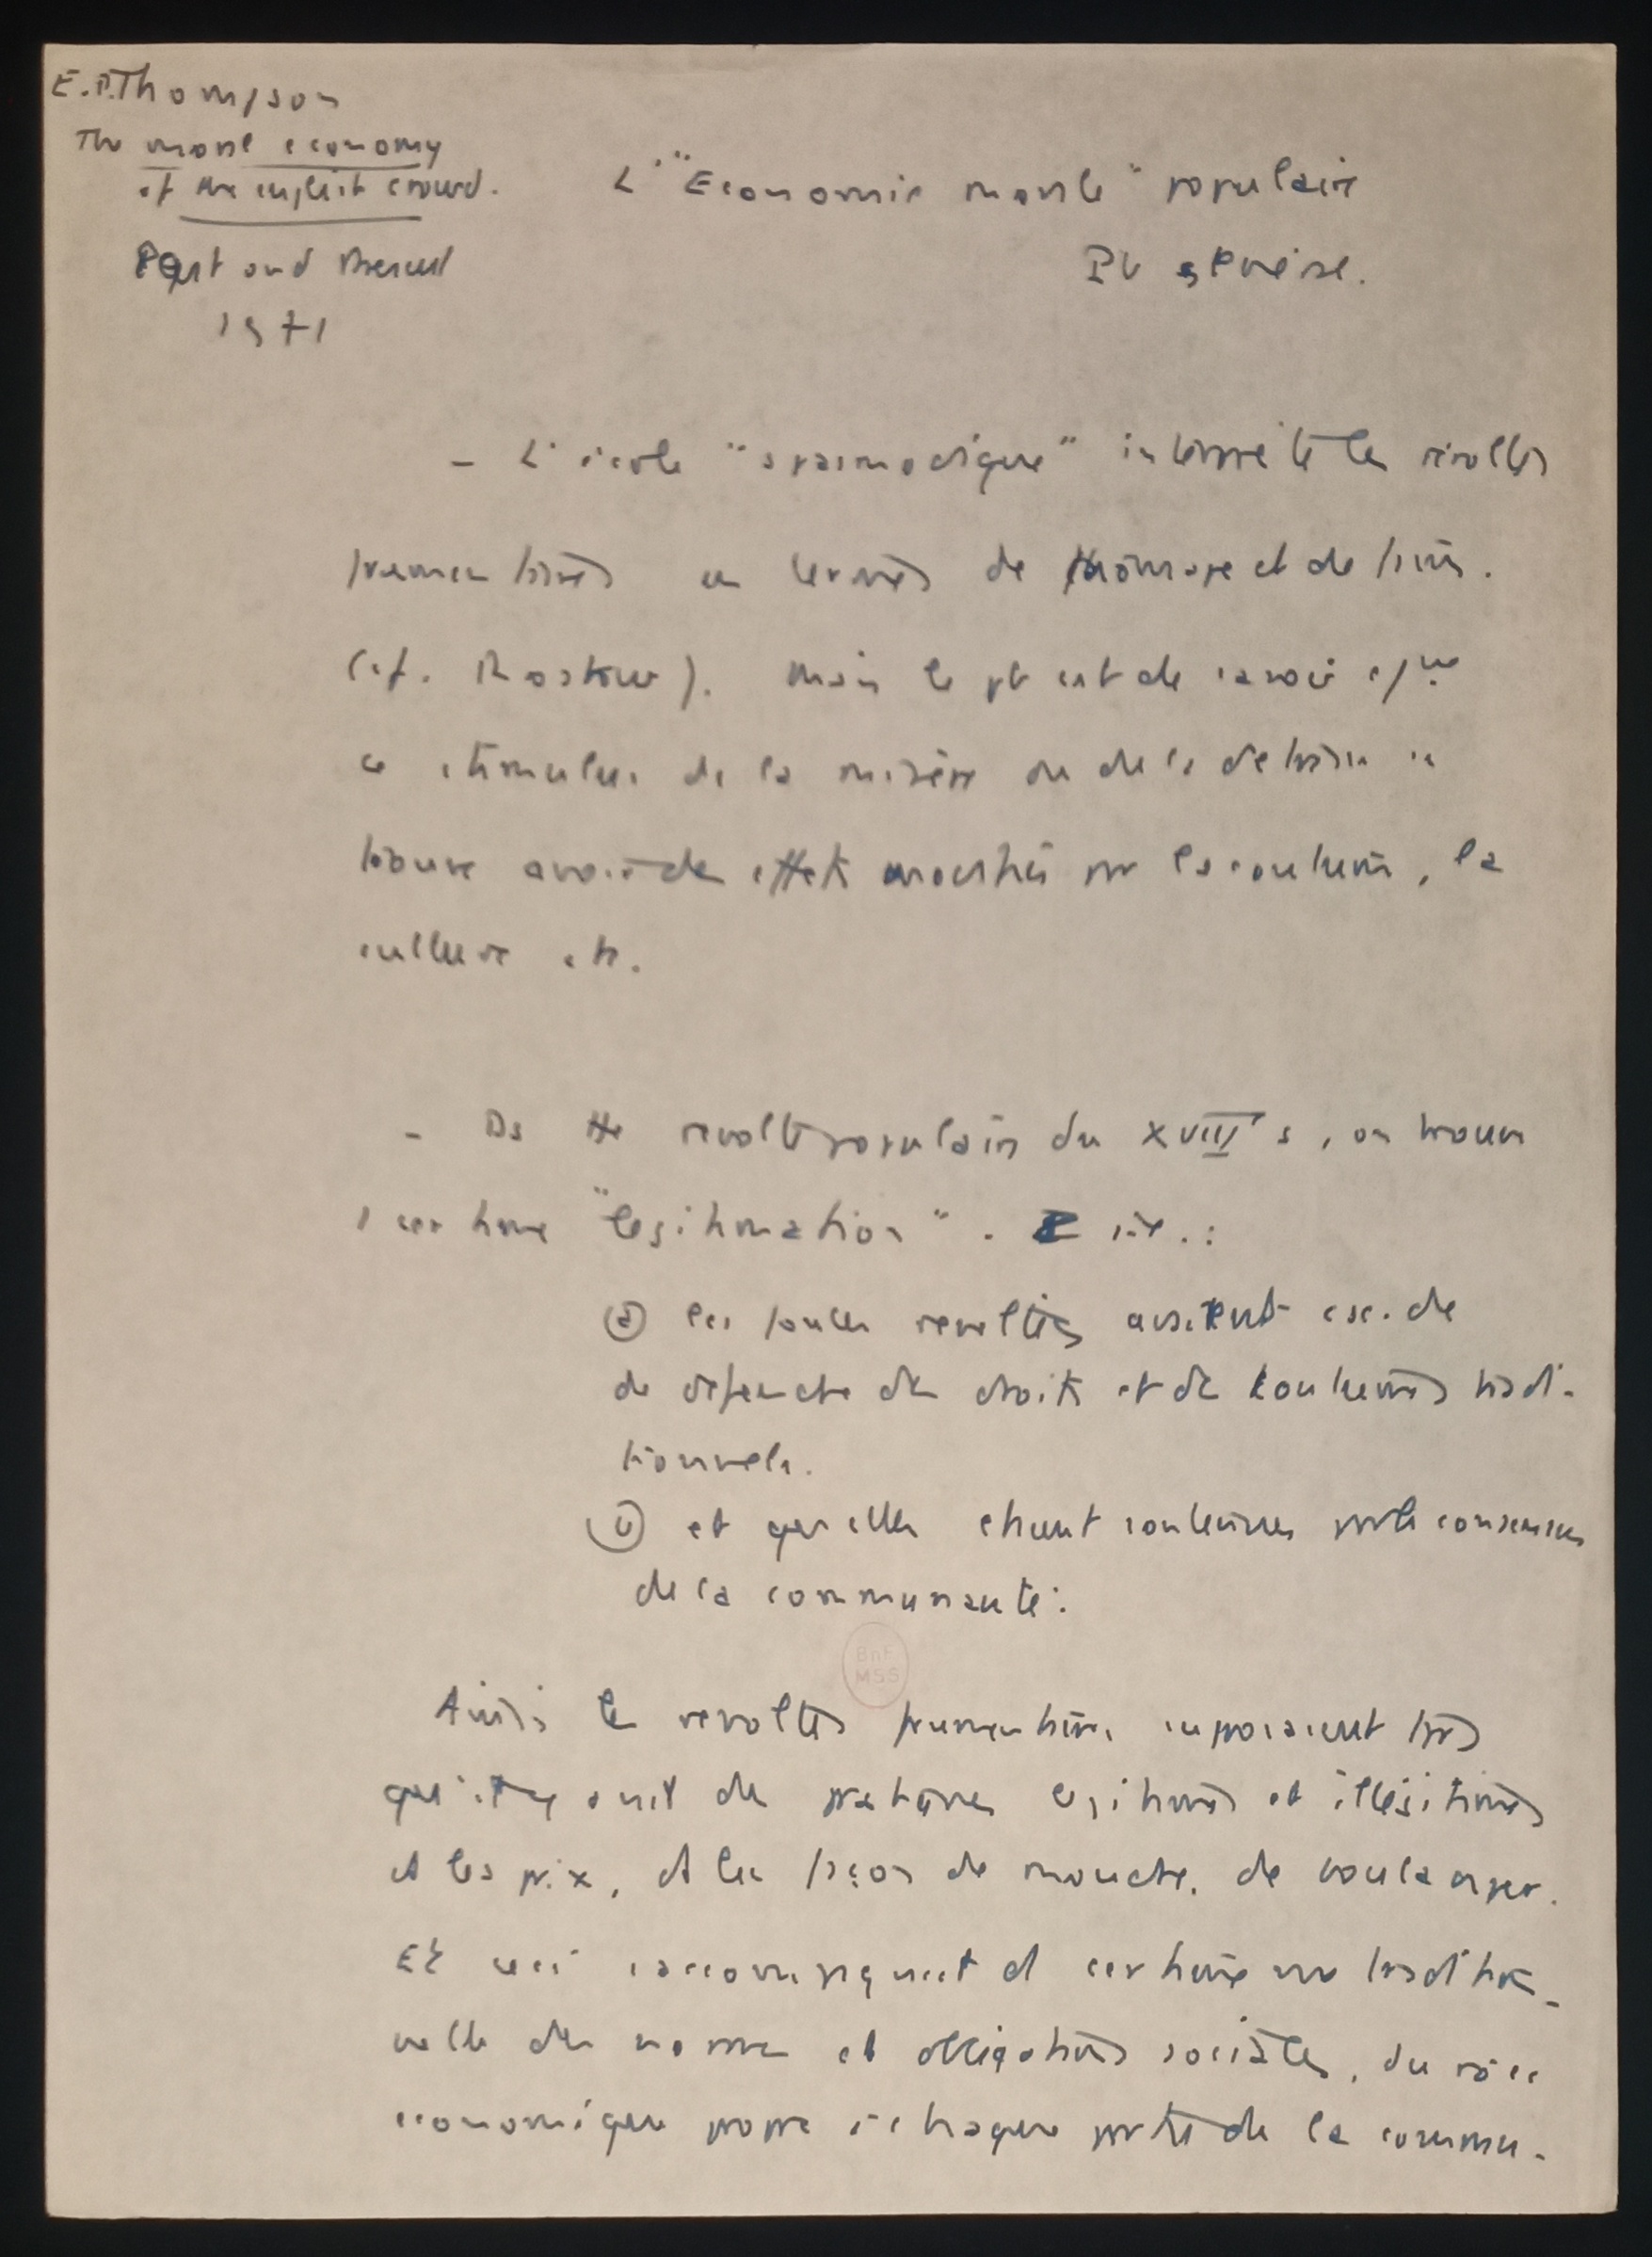 E.P. Thompson
The moral economy
of the english crowd.
Past and Present
1971
L'"Economie morale" populaire
- L'école "spasmodique" interprète les révoltes
frumentaires en termes de chômage et de faim.
(cf. Rostow). Mais le pb est de savoir
ce stimulus de la misère ou de la détresse
trouve avoir des effets modifiés par la coutume, la
culture etc.
- Ds tte révolte populaire du XVIII s, on trouve
1 certaine "légitimation". :
(a) les foules révoltées avaient
de défendre des droits et des coutumes tradi-
tionnels.
(b) et qu'elles étaient soutenues par le consensus
de la communauté.
Ainsi les révoltes frumentaires
qu'il y avait des pratiques légitimes et illégitimes
et les prix, et les façon de moudre, de boulanger.
Et ceci s'accompagnait d certaine vue tradition-
nelle des normes et obligations sociales, du rôle
économique propre à chaque partie de la commu-
BnF
MSS